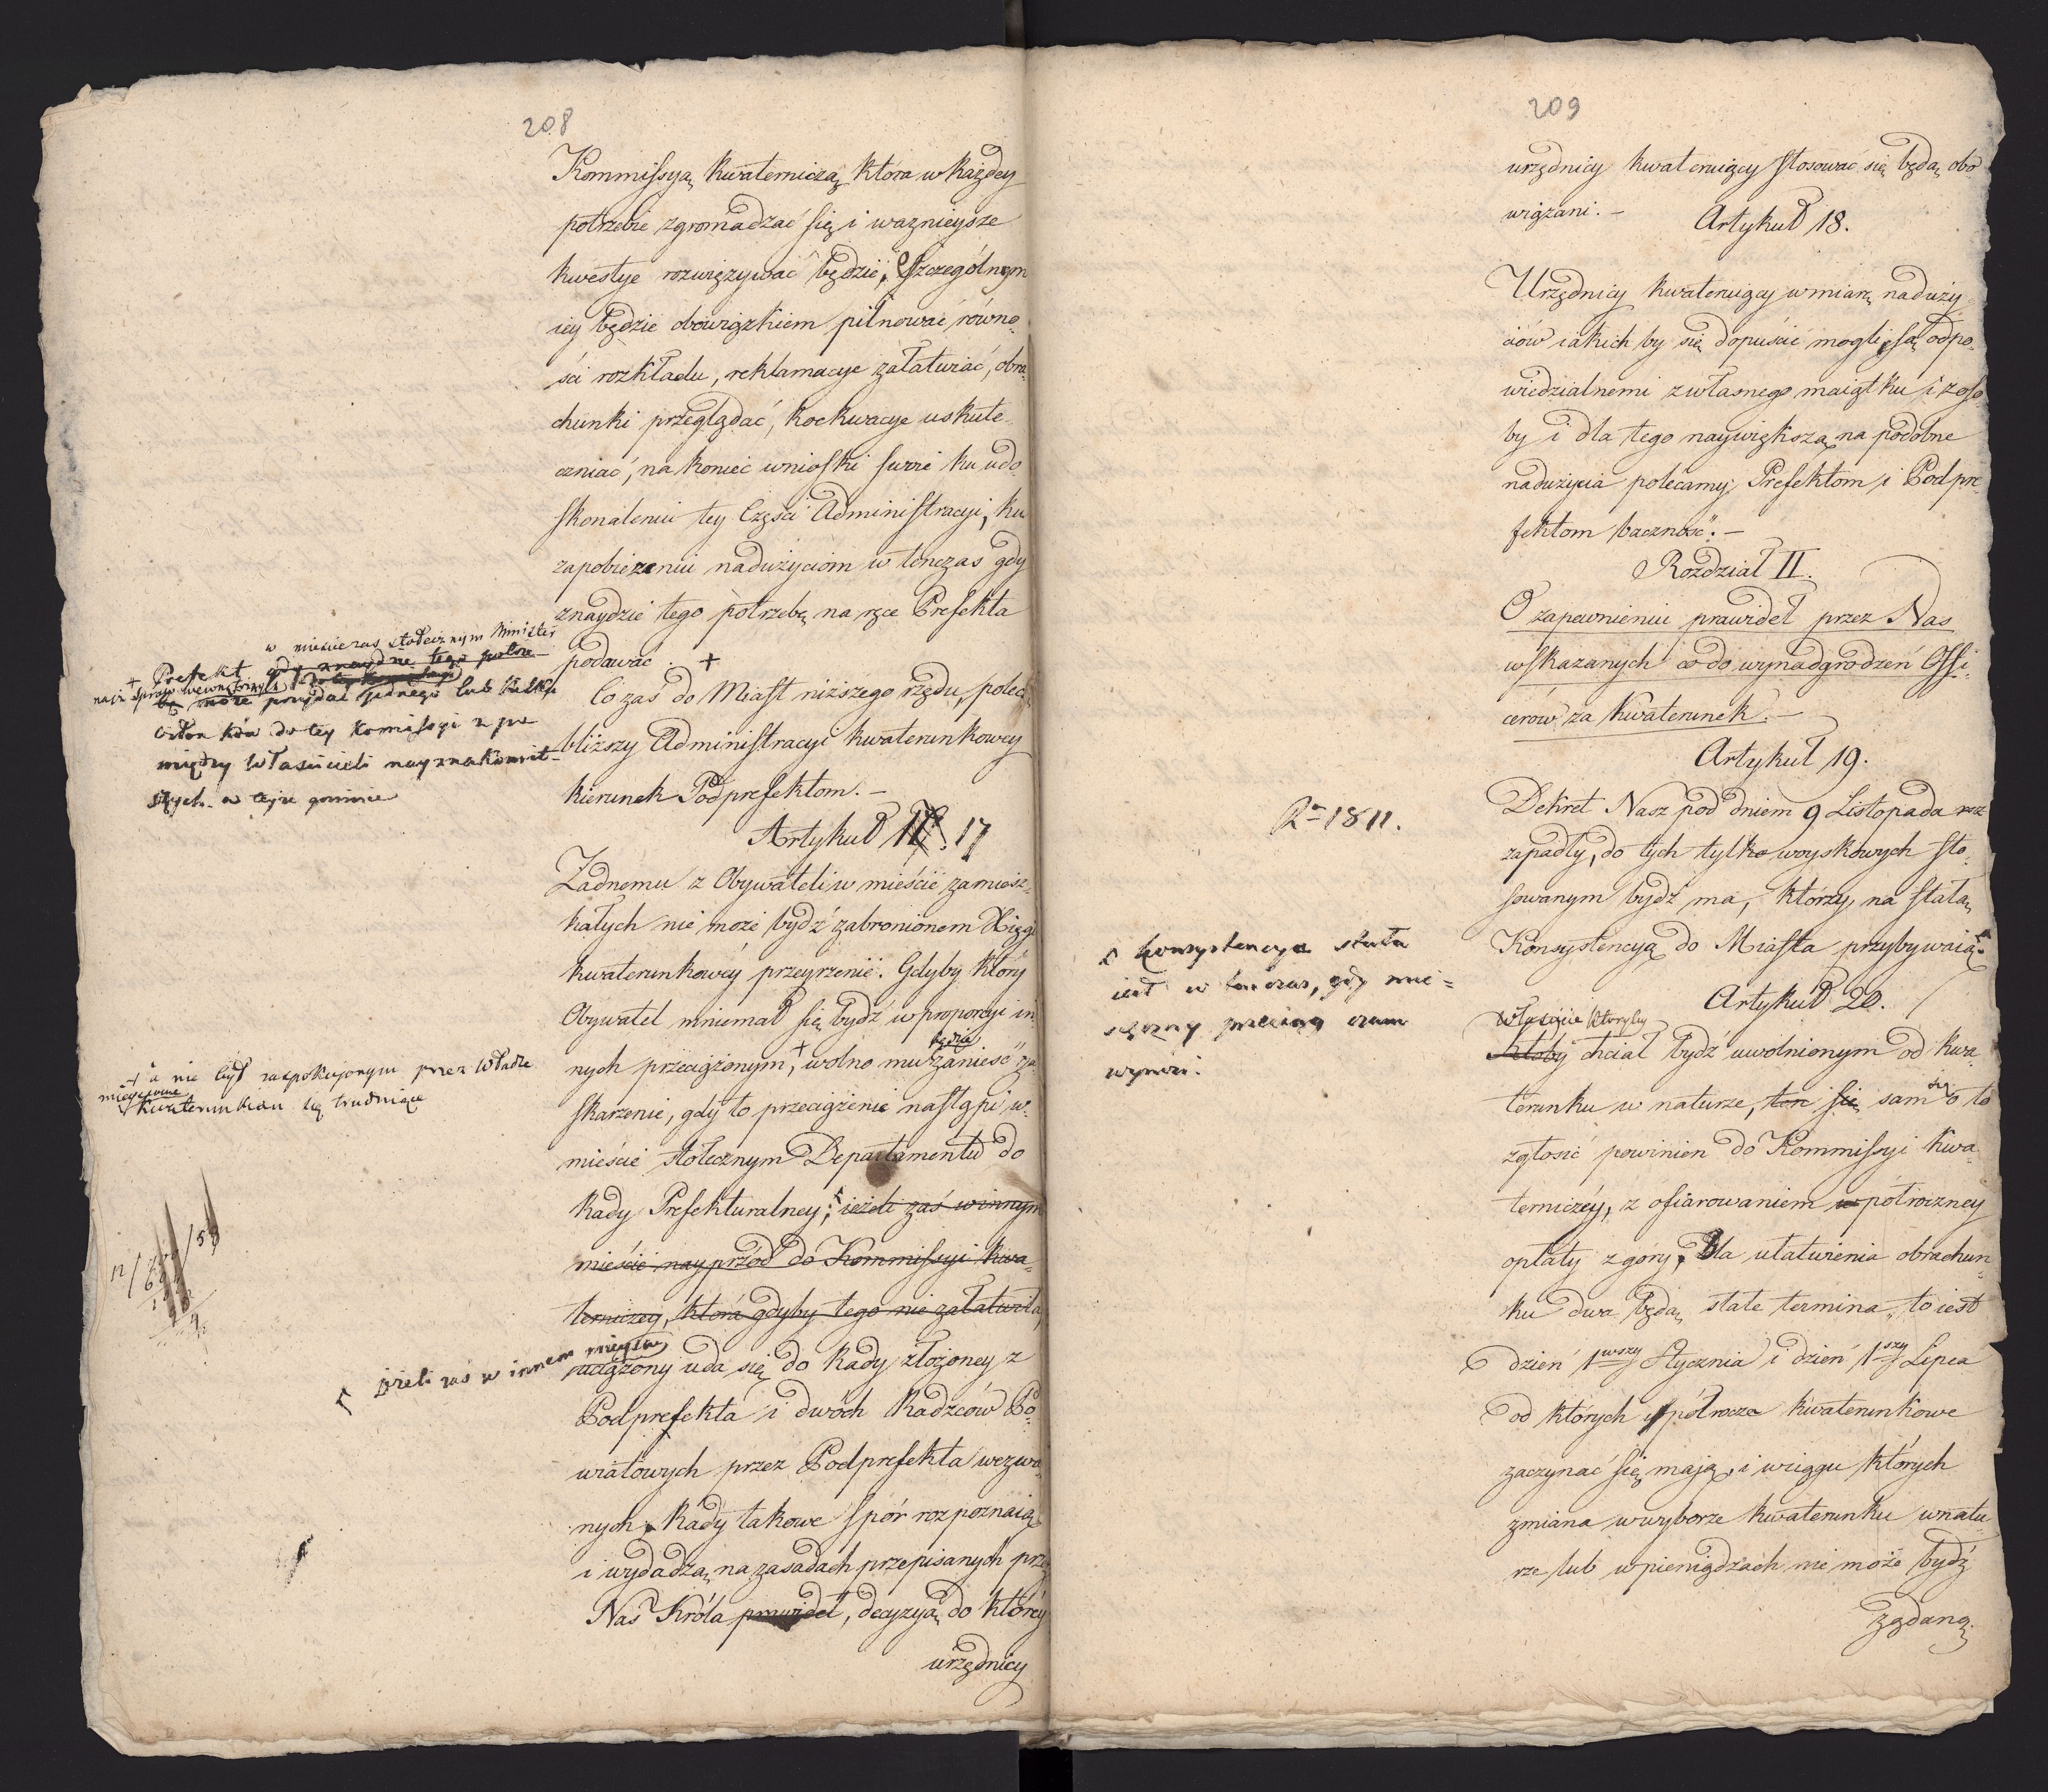 208
Kommissyą kwaterniczą która w każdey
potrzebie zgromadzać się i ważnieysze
kwestye rozwięzywać będzie, Szczególnym
iey będzie obowiązkiem pilnować równo-
ści rozkładu, reklamacye załatwiać, obra-
chunki przeglądać, koekwacye uskute-
czniać, na koniec wnioski swoie ku udo-
skonaleniu tey Części Administracyi, ku
zapobieżeniu nadużyciom w tenczas gdy
znaydzie tego potrzebę na ręce Prefekta
podawać. +
Co zaś do Miast niższego rzędu, poleca
bliższy Administracyi kwaterunkowey
kierunek Podprefektom. –
Artykuł 17
Żadnemu z Obywateli w mieście zamiesz-
kałych nie może bydź zabronionem Xięgi
kwaterunkowey przeyrzenie. Gdyby który
Obywatel mniemał się bydź w proporcyi in-
nych przeciążonym, + wolno mu będzie zanieść za-
skarzenie, gdy to przeciążenie nastąpi w
mieście stołecznym Departamentu do
Rady Prefekturalney; ieżeli zaś w innym
mieście nayprzód do Kommissyi kwa-
terniczey, która gdyby tego nie załatwiła,
uciążony uda się do Rady złożoney z
Podprefekta i dwóch Radzców Po-
wiatowych przez Podprefekta wezwa-
nych. Rady takowe spór rozpoznaią
i wydadzą na zasadach przepisanych przez
Nas Króla prawideł, decyzyą do którey
urzędnicy
w mieście zas stołecznym Minister
+ Prefekt gdy znaydzie tego potrze-
bę może przydać jednego lub kilku
członków do tey komissyi z po
między właścicieli nayznakomit-
szych w teyże gminie
+ a nie był zaspokojonym przez władze
mieyscowe
kwaterunkiem się trudniące
ieżeli zas w innem mieyscu
209
urzędnicy kwaterujący stosować się będą obo-
wiązani. –
Artykuł 18.
Urzędnicy kwaterujący w miarę naduży-
ciów iakich by się dopuścić mogli, są odpo-
wiedzialnemi z własnego maiątku i z oso-
by i dla tego naywiększą na podobne
nadużycia polecamy Prefektom i Podpre-
fektom baczność. –
Rozdział II.
O zapewnieniu prawideł przez Nas
wskazanych co do wynadgrodzeń Offi-
cerów za kwaterunek. –
Artykuł 19.
Dekret Nasz pod dniem 9 Listopada
zapadły, do tych tylko woyskowych sto-
sowanym bydź ma, którzy na stałą
Konsystencyą do Miasta przybywaią.
Artykuł 20.
Właściciel któryby
ktoby chciał bydź uwolnionym od kwa-
terunku w naturze, ten się sam się o to
zgłosić powinien do Kommissyi kwa-
terniczey, z ofiarowaniem półroczney
opłaty z góry, Dla ułatwienia obrachun-
ku dwa będą stałe termina, to iest
dzień 1wszy Stycznia i dzień 1szy Lipca
od których półrocza kwaterunkowe
zaczynać się mają, i w ciągu których
zmiana w wyborze kwaterunku w natu-
rze lub w pieniądzach nie może bydź
żądaną.
Rº 1811.
konsystencya stała
iest w tenczas, gdy mie-
sięczny przeciąg czasu
wynosi.